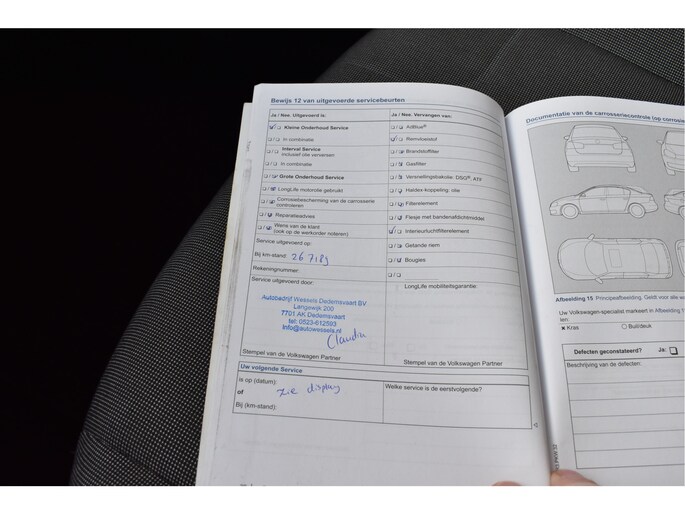 Bewijs 12 van uitgevoerde servicebeurten
Ja / Nee. Uitgevoerd is:
Kleine Onderhoud Service
In combinatie
Interval Service
inclusief olie verversen
In combinatie
Grote Onderhoud Service
LongLife motorolie gebruikt
Corrosiebescherming van de carrosserie
controleren
Reparatieadvies
Wens van de klant
(ook op de werkorder noteren)
Service uitgevoerd op:
Bij km-stand: 26.7189
Rekeningnummer:
Service uitgevoerd door:
Autobedrijf Wessels Dedemsvaart BV
Langewijk 200
7701 AK Dedemsvaart
tel: 0523-612593
Info@autowessels.nl
Claudia
Stempel van de Volkswagen Partner
Ja / Nee. Vervangen van:
AdBlue®
Remvloeistof
Brandstoffilter
Gasfilter
Versnellingsbakolie: DSG®, ATF
Haldex-koppeling: olie
Filterelement
Flesje met bandenafdichtmiddel
Interieurluchtfilterelement
Getande riem
Bougies
LongLife mobiliteitsgarantie:
Stempel van de Volkswagen Partner
Uw volgende Service
is op (datum):
of zie display
Bij (km-stand):
Welke service is de eerstvolgende?
Documentatie van de carrosseriecontrole (op corrosie
Afbeelding 15 Principeafbeelding. Geldt voor alle
Uw Volkswagen-specialist markeert in Afbeelding
ten:
Kras
Buil/deuk
Defecten geconstateerd? Ja:
Beschrijving van de defecten: